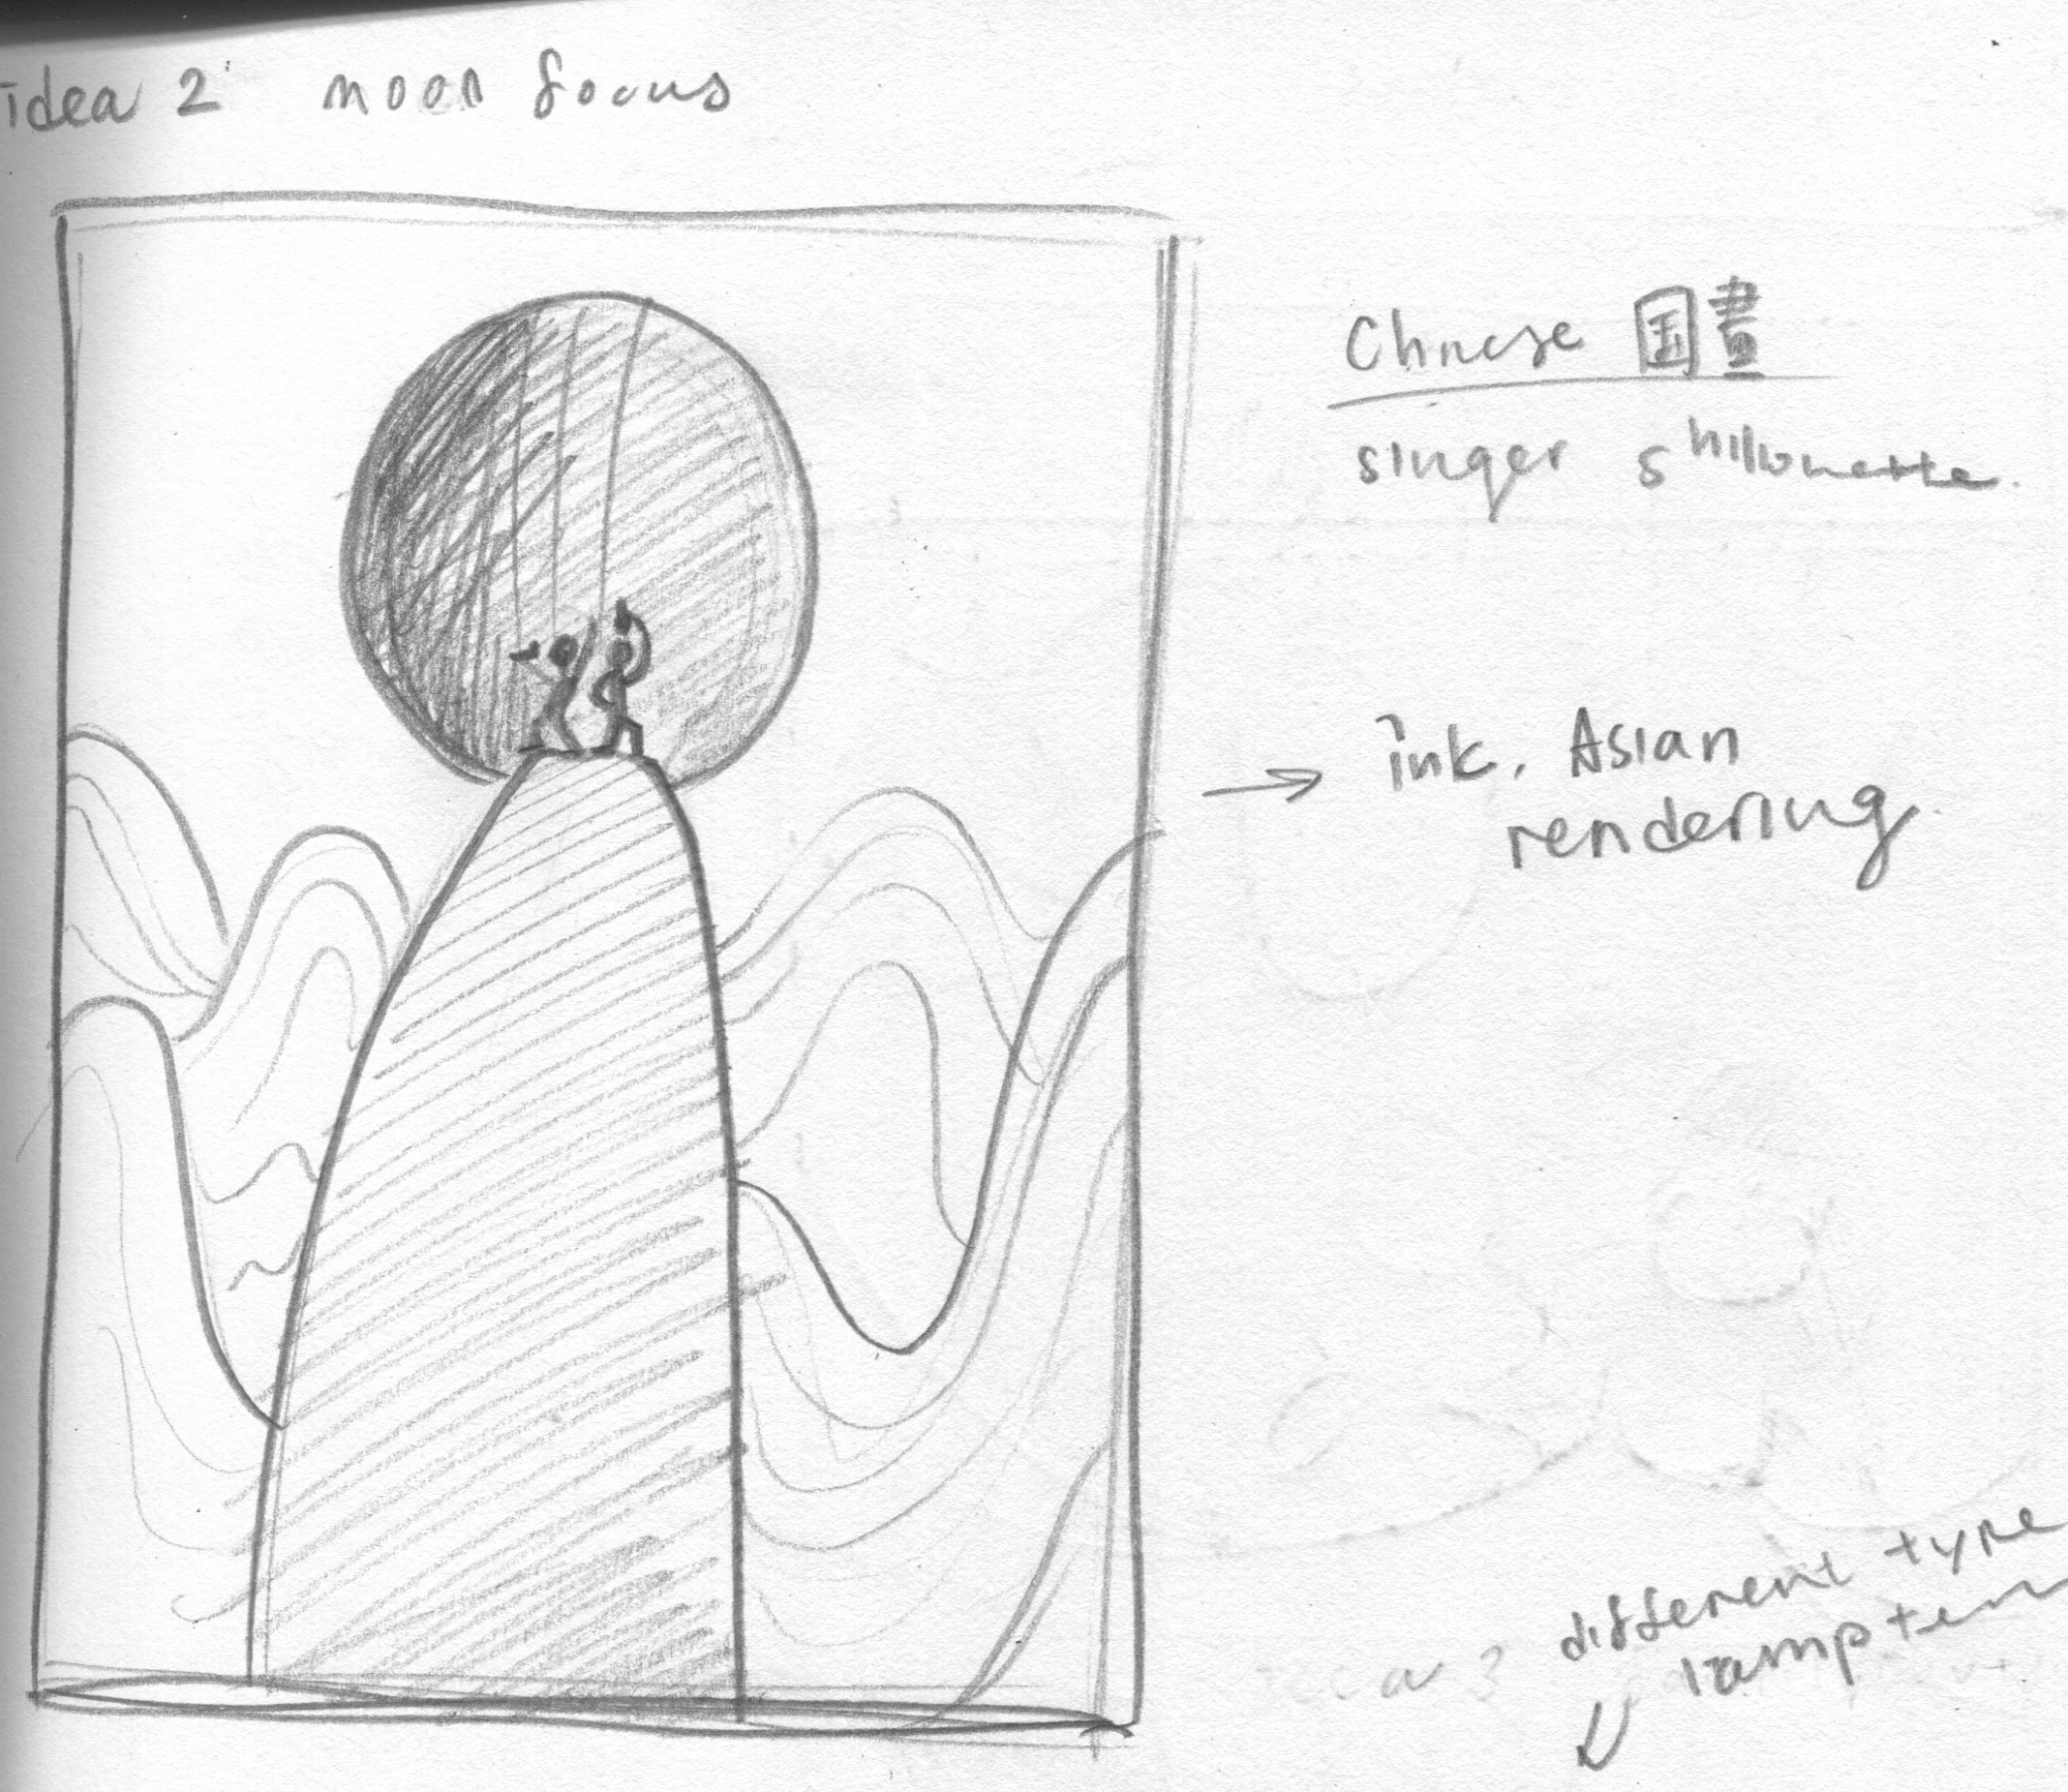 idea 2 moon focus
Chinese 国畫
singer shillouette.
→ ink, Asian
rendering.
different type